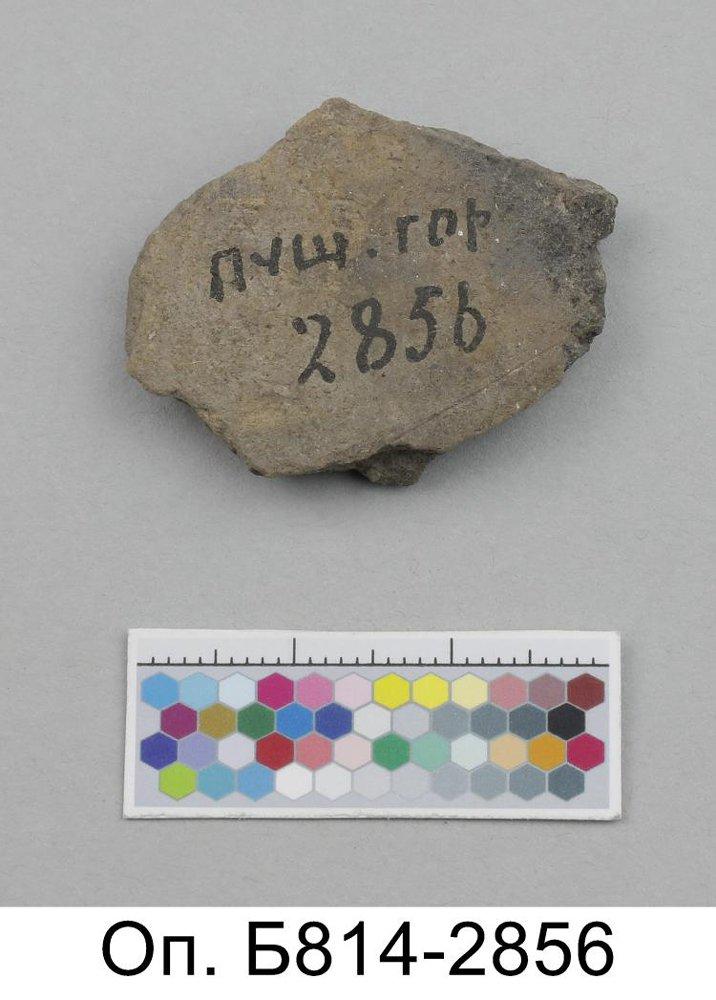 пущ. гор
2856
Оп. Б814-2856